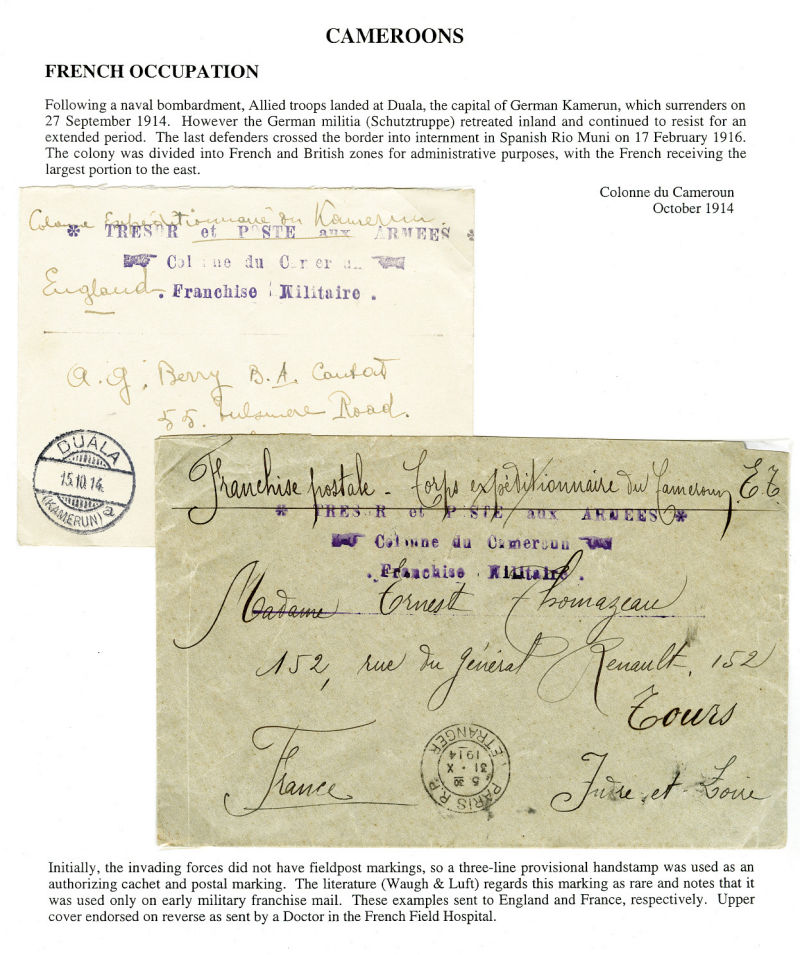 CAMEROONS
FRENCH OCCUPATION
Following a naval bombardment, Allied troops landed at Duala, the capital of German Kamerun, which surrenders on
27 September 1914. However the German militia (Schutztruppe) retreated inland and continued to resist for an
extended period. The last defenders crossed the border into internment in Spanish Rio Muni on 17 February 1916.
The colony was divided into French and British zones for administrative purposes, with the French receiving the
largest portion to the east.
Colonne du Cameroun
October 1914
Colonne Expéditionnaire du Kamerun.
* TRESOR et POSTE aux ARMEES *
Colonne du Cameroun
England
. Franchise Militaire .
A. G. Berry B.A. Cantab
55. Road.
DUALA
15.10.14.
(KAMERUN) a
Franchise postale - Corps expéditionnaire du Cameroun E.T.
* TRESOR et POSTE aux ARMEES *
Colonne du Cameroun
. Franchise Militaire .
Madame Ernest Thomazeau
152, rue du Général Renault, 152
Tours
France
Indre et Loire
PARIS R.P.
5 30
31 - X
1914
ETRANGER
Initially, the invading forces did not have fieldpost markings, so a three-line provisional handstamp was used as an
authorizing cachet and postal marking. The literature (Waugh & Luft) regards this marking as rare and notes that it
was used only on early military franchise mail. These examples sent to England and France, respectively. Upper
cover endorsed on reverse as sent by a Doctor in the French Field Hospital.